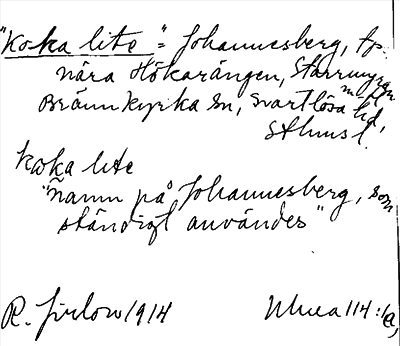 "Koka lite" = Johannesberg, tp.
nära Hökarängen, Starrmyran
m fl
Brännkyrka sn, Svartlösa hd,
Sthms l.
Koka lite
"Namn på Johannesberg, som
ständigt användes"
R. Jirlow 1914 Ulma 114:1a,